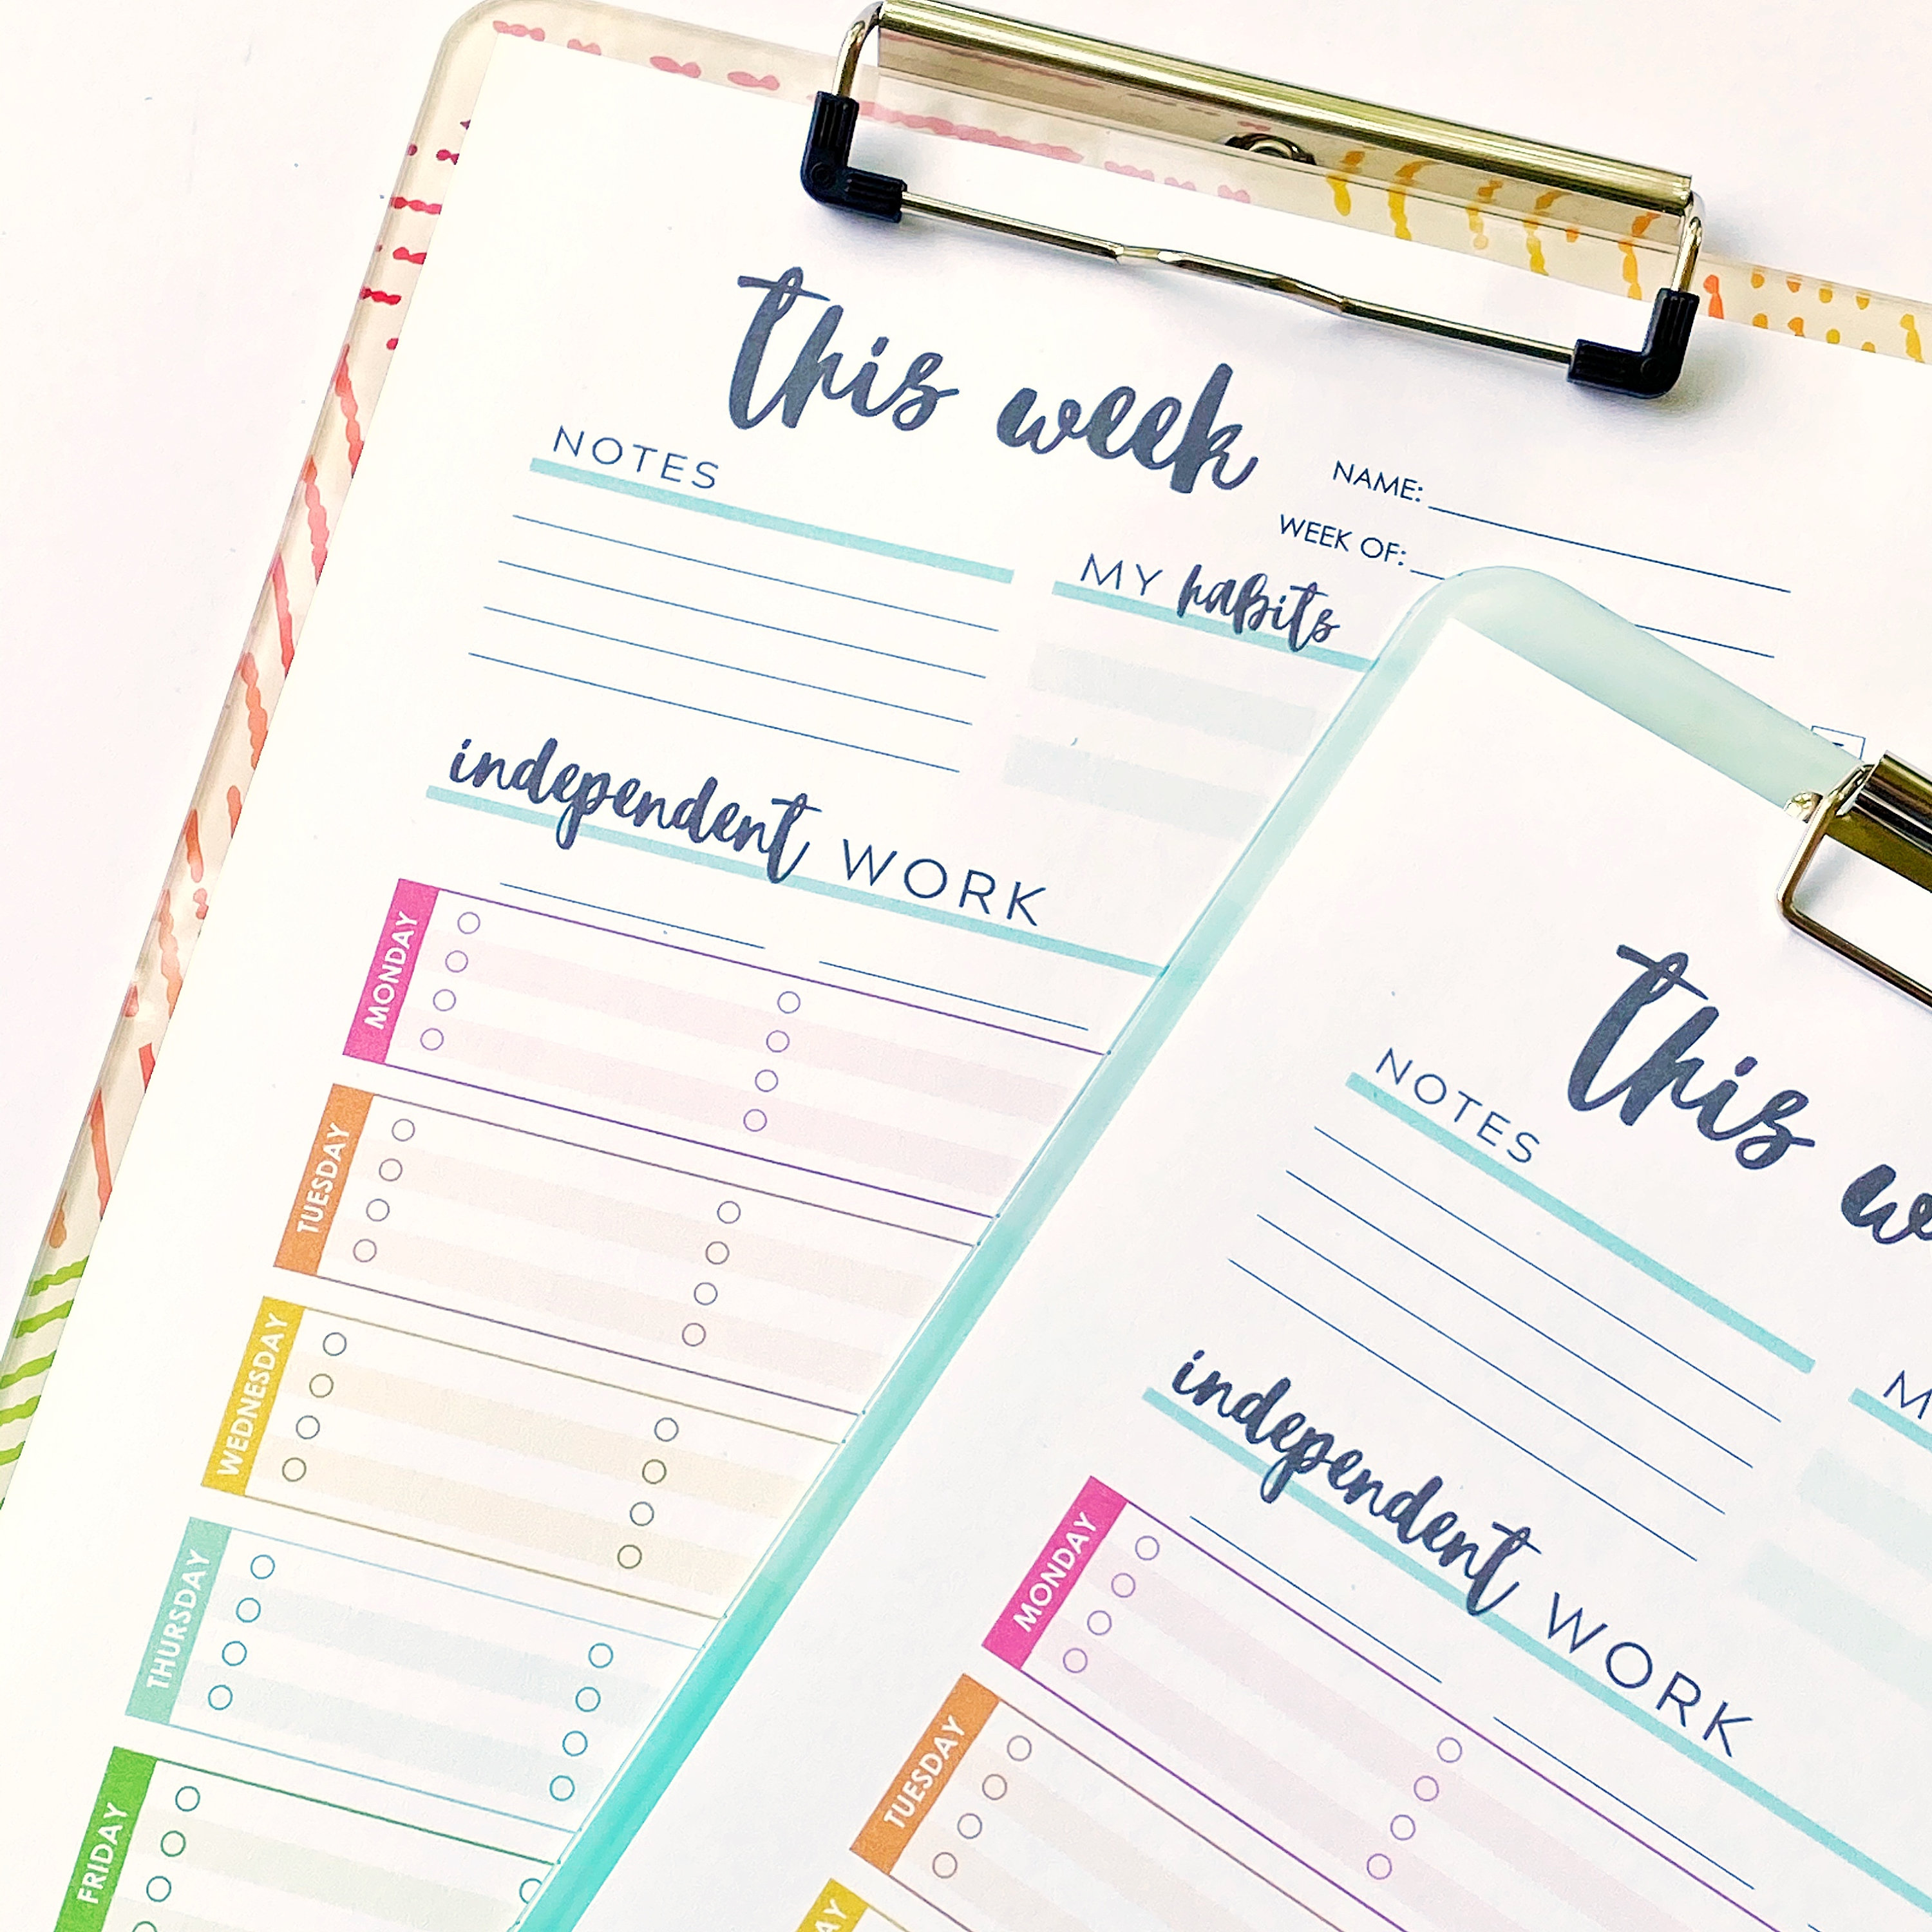 this week
NAME:
WEEK OF:
NOTES
MY habits
independent WORK
MONDAY
TUESDAY
WEDNESDAY
THURSDAY
FRIDAY
this we
NOTES
M
independent WORK
MONDAY
TUESDAY
AY